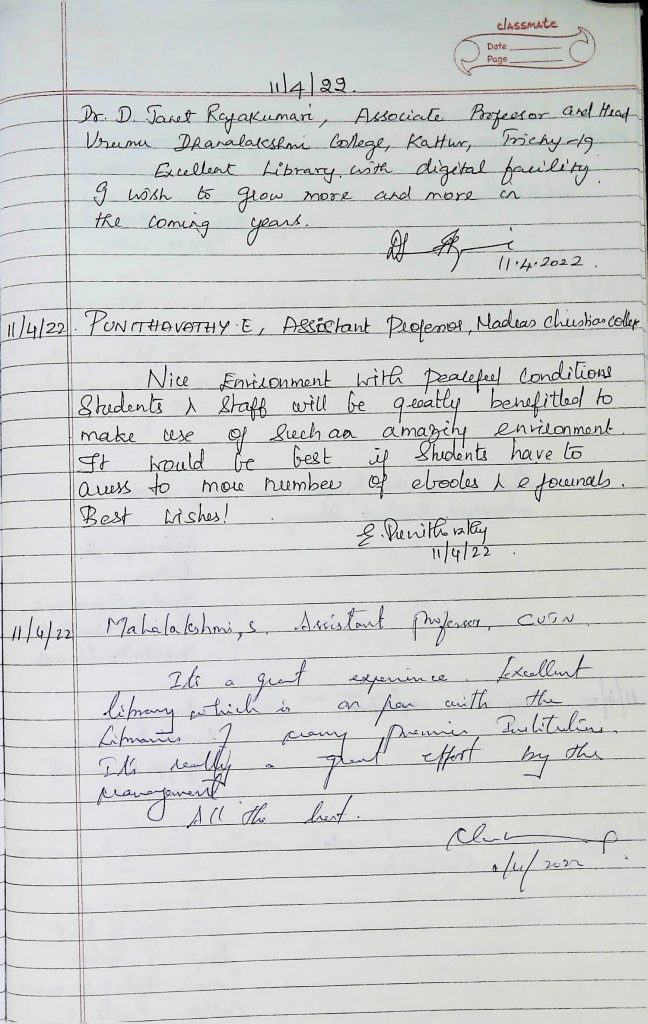 classmate
Date
Page
11/4/22.
Dr. D. Janet Rajakumari, Associate Professor and Head
Urumu Dhanalakshmi College, Kattur, Trichy-19
Excellent Library with digital facility.
I wish to grow more and more in
the coming years.
11.4.2022.
11/4/22. PUNITHAVATHY. E, Assistant Professor, Madras Christian college
Nice Environment with peaceful conditions
Students & Staff will be greatly benefitted to
make use of such an amazing environment
It would be best if Students have to
access to more number of ebooks & e journals.
Best wishes!
E. Punithavathy
11/4/22.
11/4/22 Mahalakshmi, S. Assistant Professor, CUTN.
It's a great experience. Excellent
library which is on par with the
Libraries of many Premier Institutions.
It's really a great effort by the
management
All the best.
11/4/2022